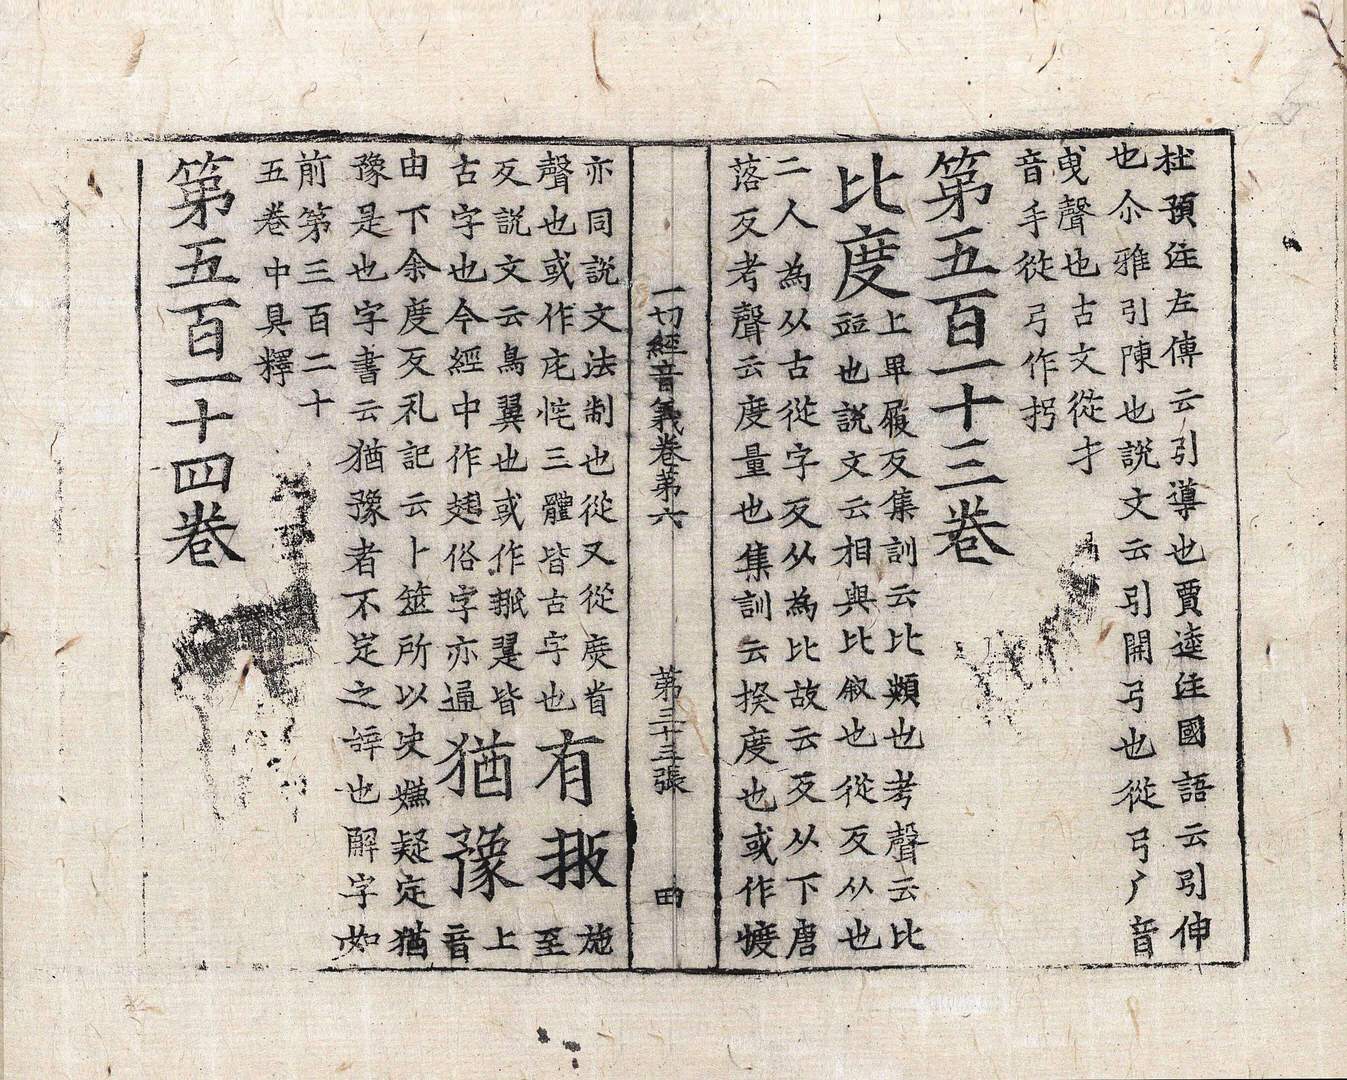 杜預注左傳云引導也賈逵注國語云引伸
也尒雅引陳也說文云引開弓也從弓广音
曳聲也古文從才
音手從弓作𢪏
第五百一十三卷
比度
上卑履反集訓云比類也考聲云比
竝也說文云相與比叙也從反从也
二人為从古從字反从為比故云反从下唐
落反考聲云度量也集訓云揆度也或作㡯
亦同說文法制也從又從庶省
聲也或作㡯㤞三體皆古字也
有翄
施至
反說文云鳥翼也或作䎐翨皆
古字也今經中作翅俗字亦通
猶豫
上音
由下余度反礼記云卜筮所以决嫌疑定猶
豫是也字書云猶豫者不定之辞也解字如
前第三百二十
五卷中具釋
第五百一十四卷
一切經音義卷第六
第三十三張
田